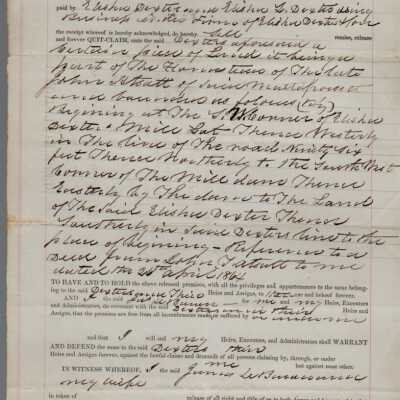 paid by Elisha Dexter and Elisha G. Dexter doing
Business under Firm of Elisha Dexter & Son
the receipt whereof is hereby acknowledged, do hereby sell remise, release
and forever QUIT-CLAIM, unto the said Dexters aforesaid a
certain piece of Land it being a
part of the Homestead of the late
John Abatt of said Mattapoisett
and bounded as follows (viz)
Begining at the S. W. Conner of Elisha
Dexters Mill Lot Thence Westerly
in The line of the road Ninety Six
feet Thence Northerly to the South West
Conner of the Mill dam Thence
Easterly by The dam to The Land
of The Said Elisha Dexter Thence
Southerly in Said Dexters line to the
place of Begining Reference to a
Deed from to me
dated the 20th April 1864
TO HAVE AND TO HOLD the above released premises, with all the privileges and appurtenances to the same belong-
ing to the said Dexters and Their Heirs and Assigns, to their use and behoof forever.
AND I the said for me and my Heirs, Executors
and Administrators, do covenant with the said Dexters and their Heirs and
Assigns, that the premises are free from all incumbrances made or suffered by
and that I will and my Heirs, Executors, and Administrators shall WARRANT
AND DEFEND the same to the said Dexters their
Heirs and Assigns forever, against the lawful claims and demands of all persons claiming by, through, or under
me but against none other.
IN WITNESS WHEREOF, I the said James
my wife
in token of release of all right and title of or to both